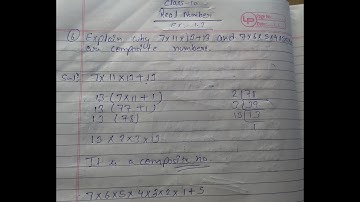 Class-10
Real Number
⑥ Explain why 7×11×13+13 and 7×6×5×4
are composite numbers.
Solⁿ 7×11×13+13
13 (7×11+1) 2|78
13 (77+1) 3|39
13 (78) 13|13
1
13×2×3×13
It is a composite no.
7×6×5×4×3×2×1+5